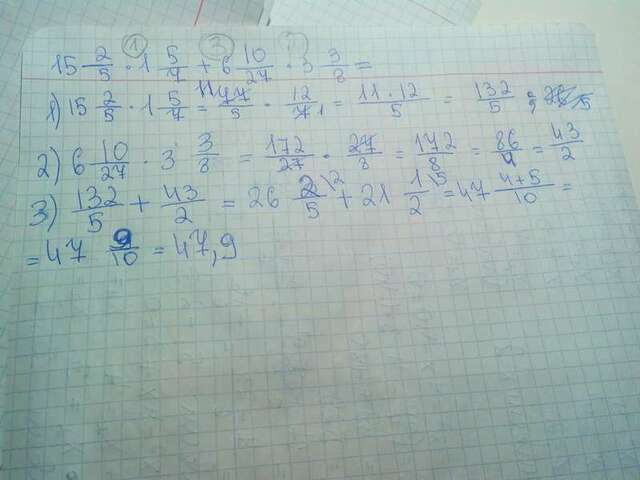 15 2/5 · 1 5/7 + 6 10/27 · 3 3/8 =
1) 15 2/5 · 1 5/7 = 77/5 · 12/7 = 11·12/5 = 132/5
2) 6 10/27 · 3 3/8 = 172/27 · 27/8 = 172/8 = 86/4 = 43/2
3) 132/5 + 43/2 = 26 2\2/5 + 21 1\5/2 = 47 4+5/10 =
= 47 9/10 = 47,9